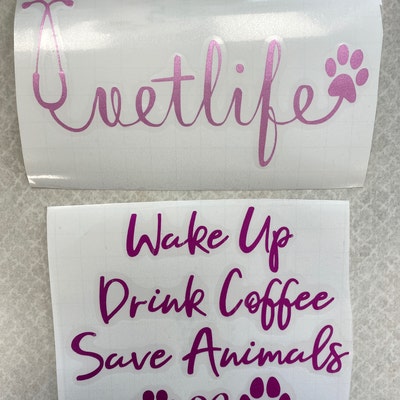 vetlife
Wake Up
Drink Coffee
Save Animals